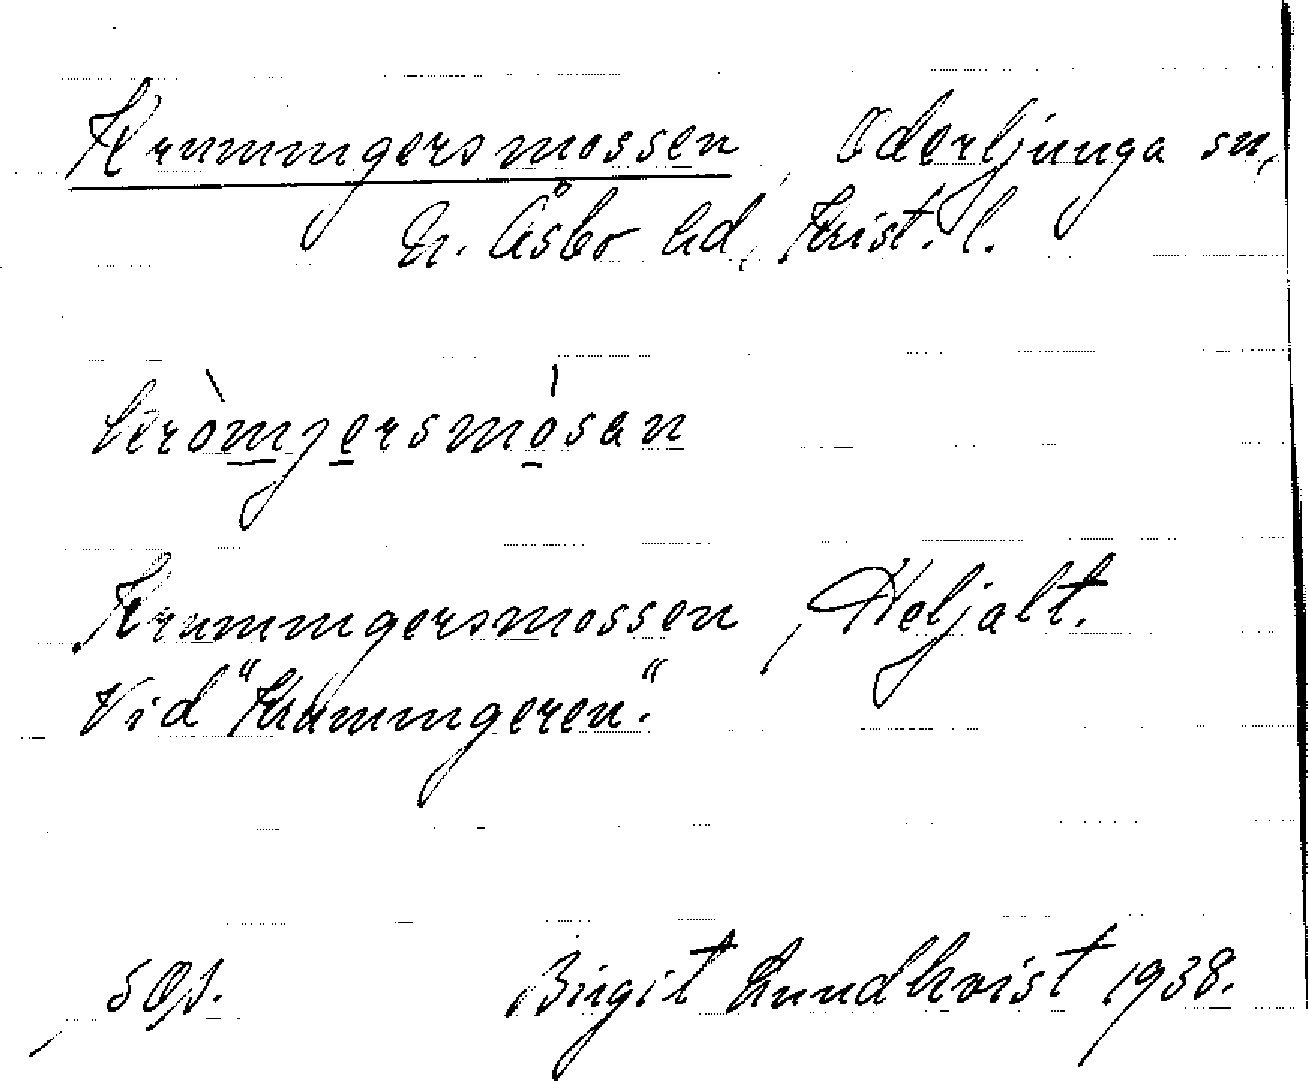 Krummgersmossen, Oderljunga sn,
N. Åsbo hd, Krist. l.
kròmgersmósan
Krummgersmossen, Heljalt.
Vid "Krummgeren."
Birgit Lundkvist 1938.